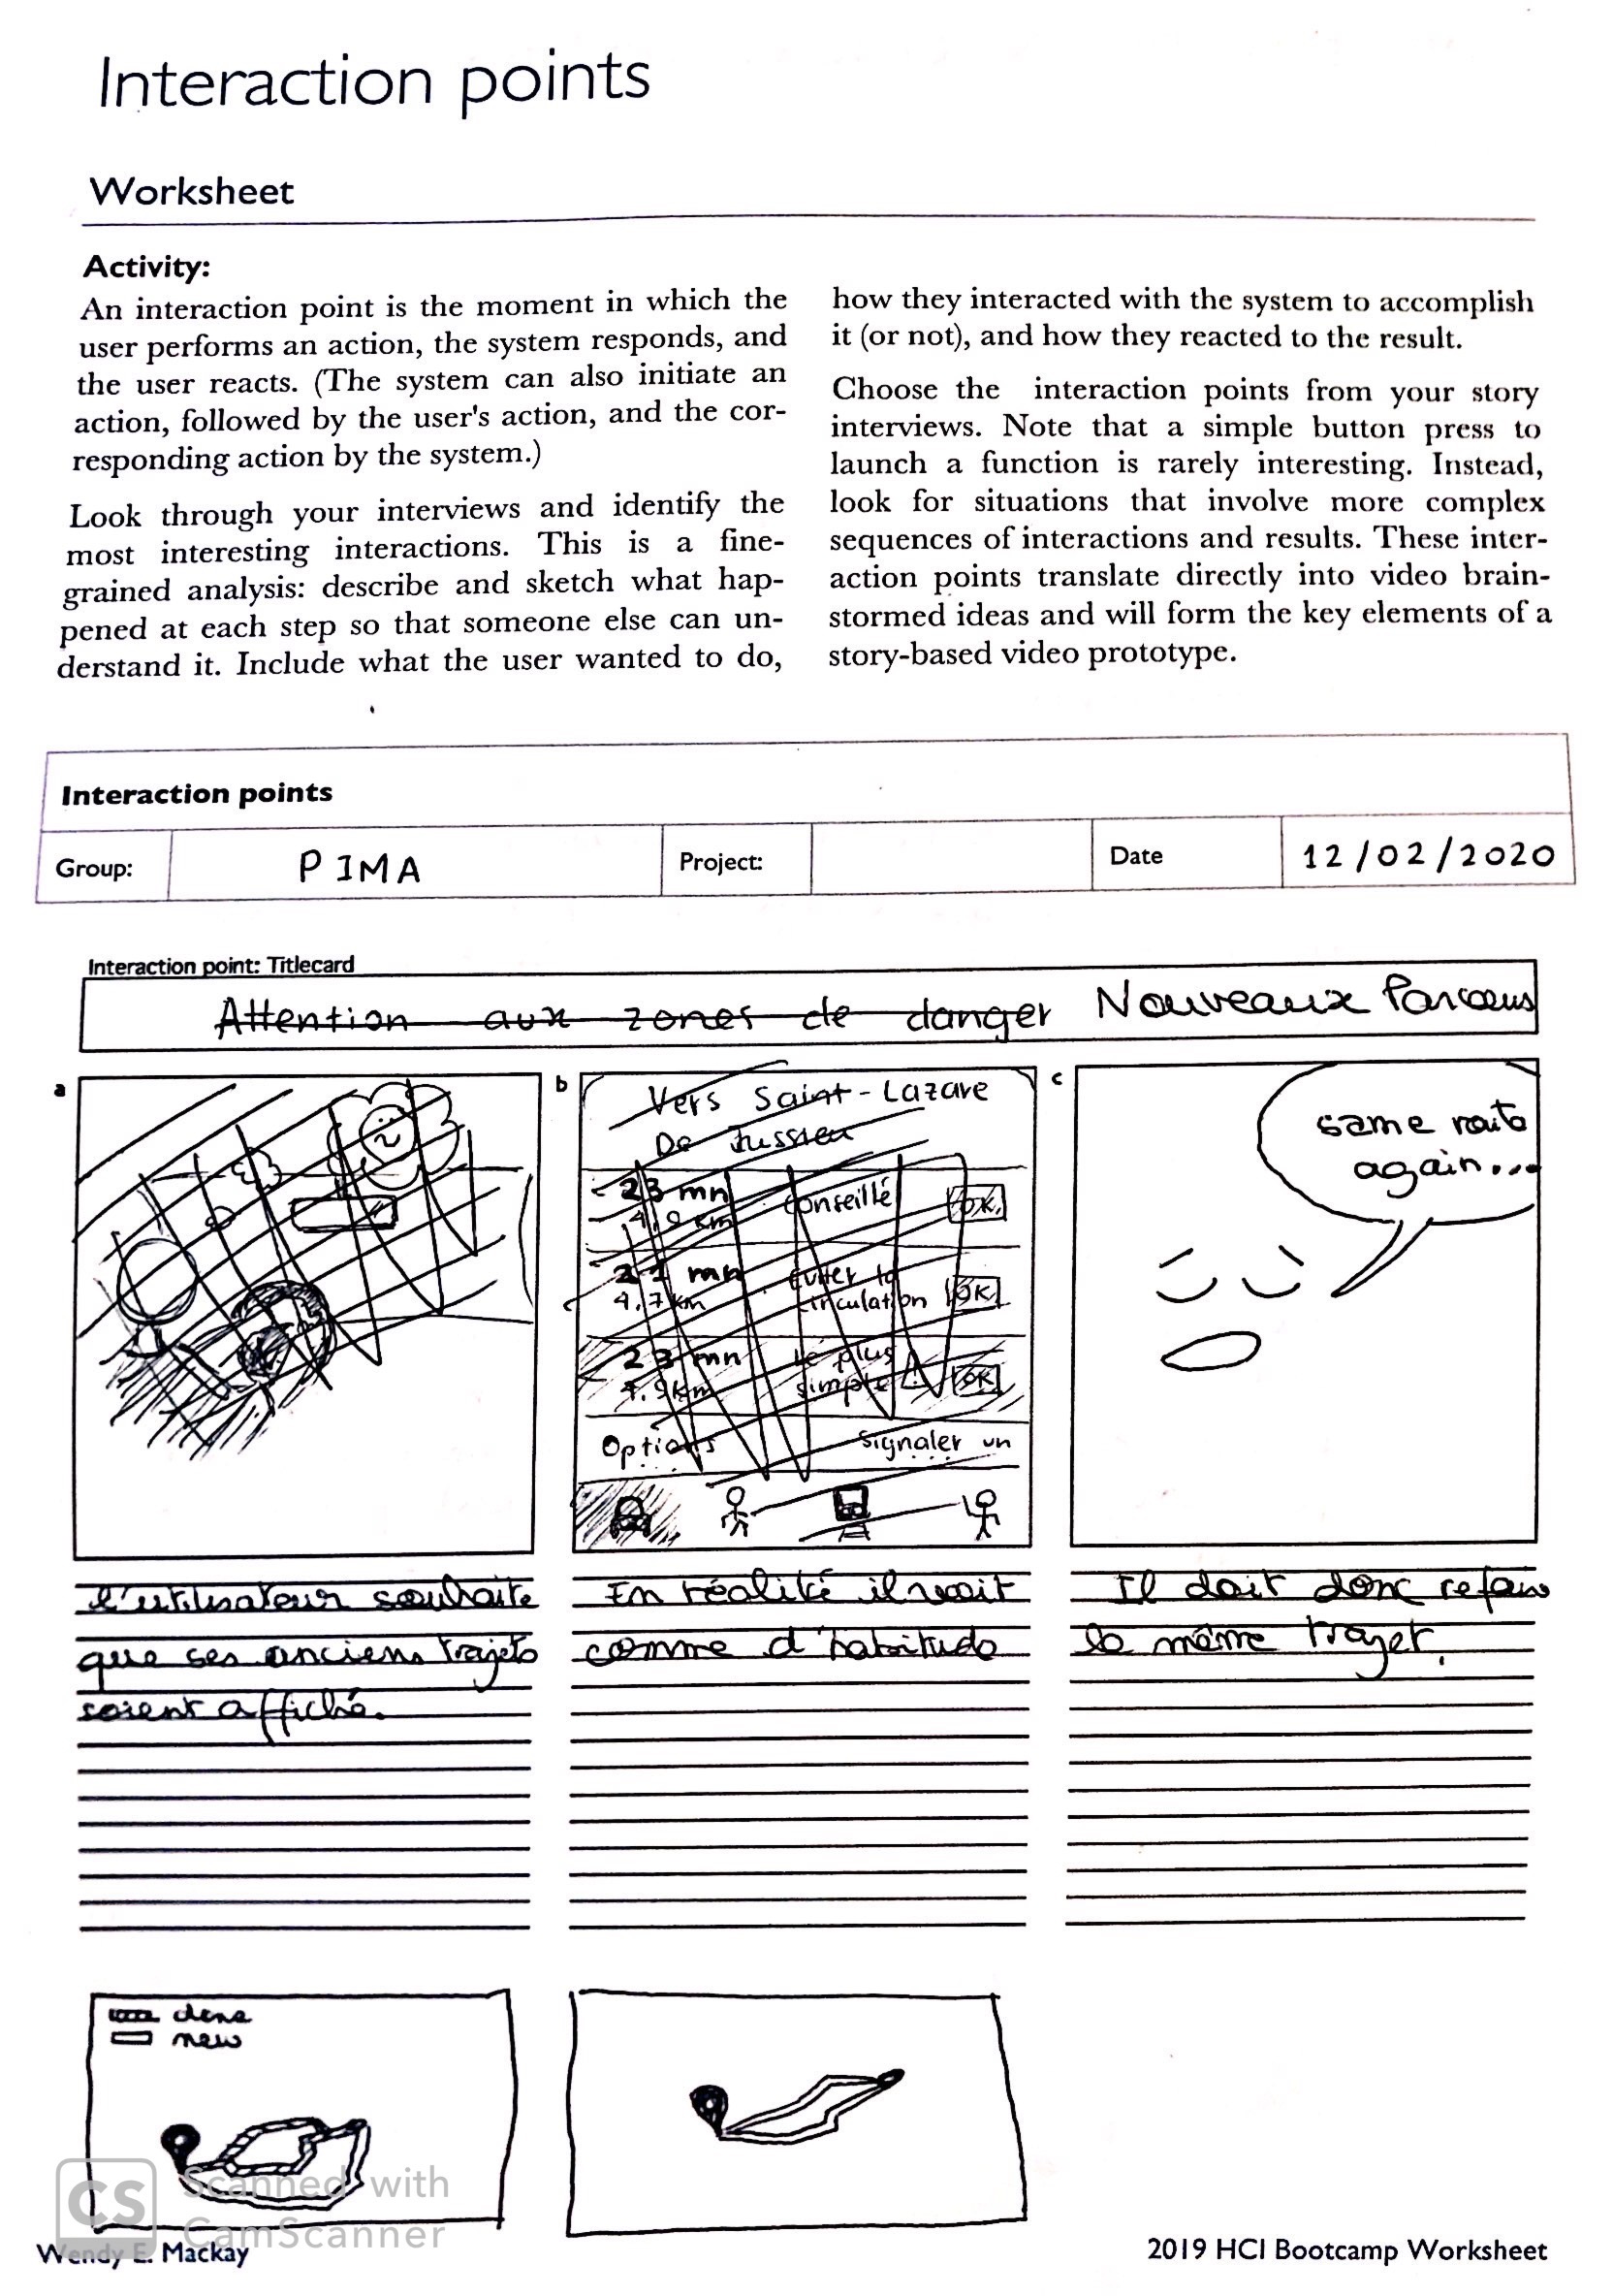 Interaction points
Worksheet
Activity:
An interaction point is the moment in which the
user performs an action, the system responds, and
the user reacts. (The system can also initiate an
action, followed by the user's action, and the cor-
responding action by the system.)
Look through your interviews and identify the
most interesting interactions. This is a fine-
grained analysis: describe and sketch what hap-
pened at each step so that someone else can un-
derstand it. Include what the user wanted to do,
how they interacted with the system to accomplish
it (or not), and how they reacted to the result.
Choose the interaction points from your story
interviews. Note that a simple button press to
launch a function is rarely interesting. Instead,
look for situations that involve more complex
sequences of interactions and results. These inter-
action points translate directly into video brain-
stormed ideas and will form the key elements of a
story-based video prototype.
Interaction points
Group: PIMA Project: Date 12/02/2020
Interaction point: Titlecard
Attention aux zones de danger Nouveaux Parcours
a
b
Vers Saint-Lazare
De Jussieu
23 mn conseillé OK
4,9 km
21 mn éviter la
4,7 km circulation OK
23 mn le plus
4,9 km simple OK
Options Signaler un
c
same
again...
l'utilisateur souhaite
que ses anciens trajets
soient affiché.
En réalité il voit
comme d'habitude
Il doit donc refaire
le même trajet.
done
new
CS
Scanned with
CamScanner
Wendy E. Mackay
2019 HCI Bootcamp Worksheet